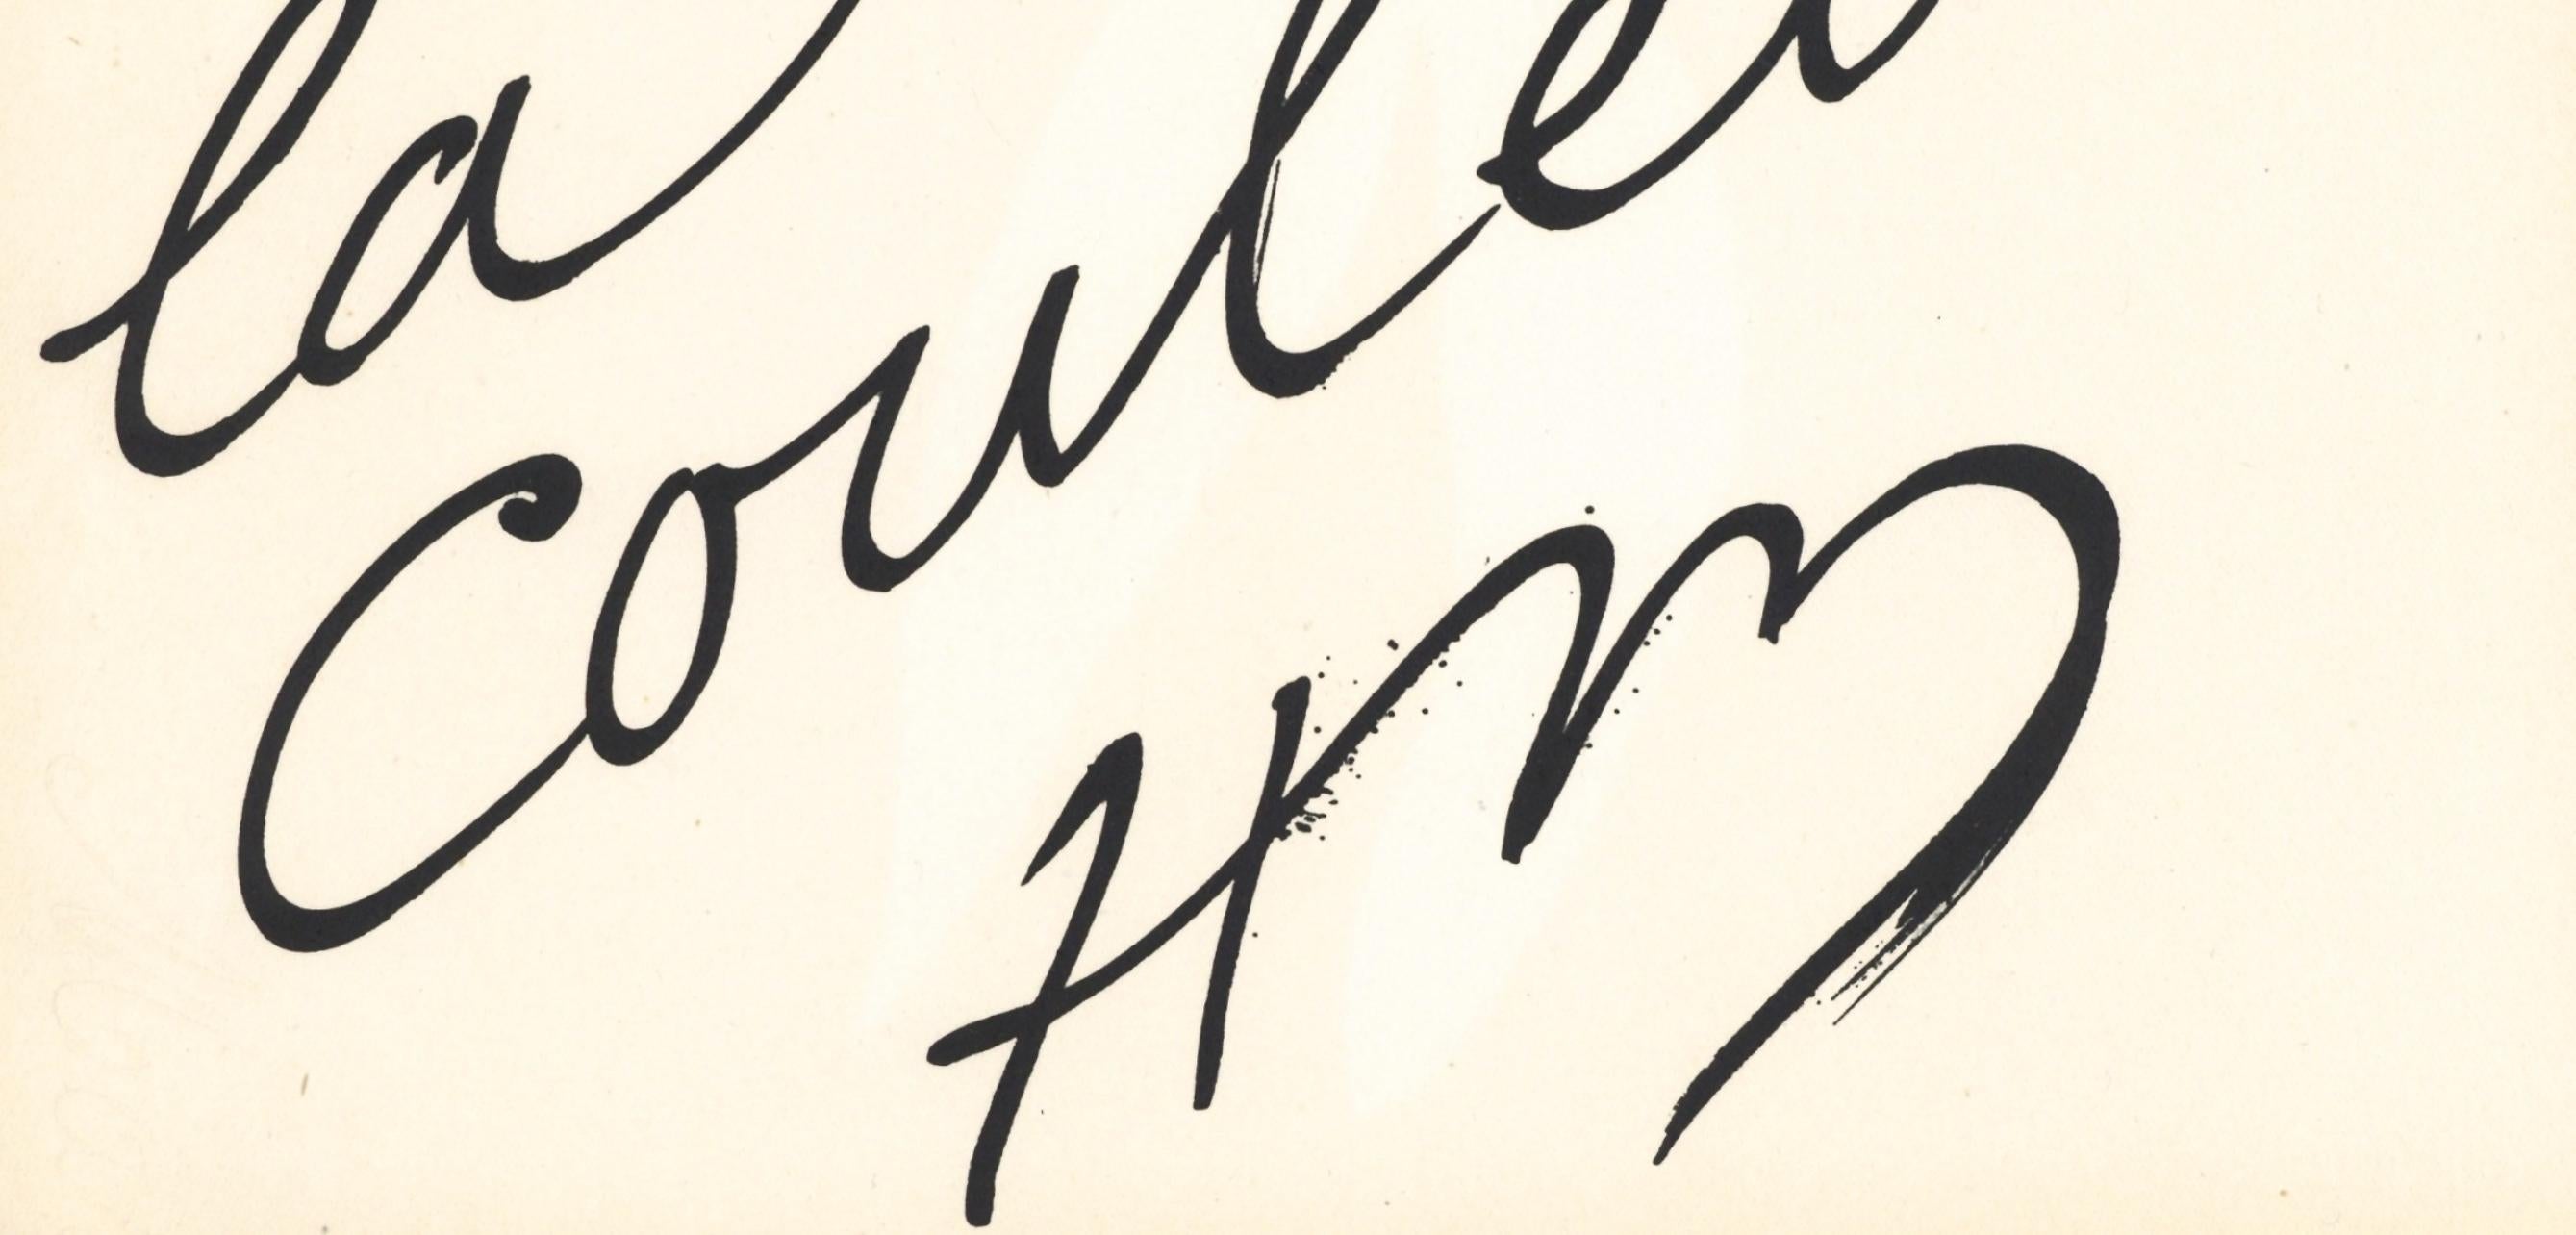 la
couleu
HM